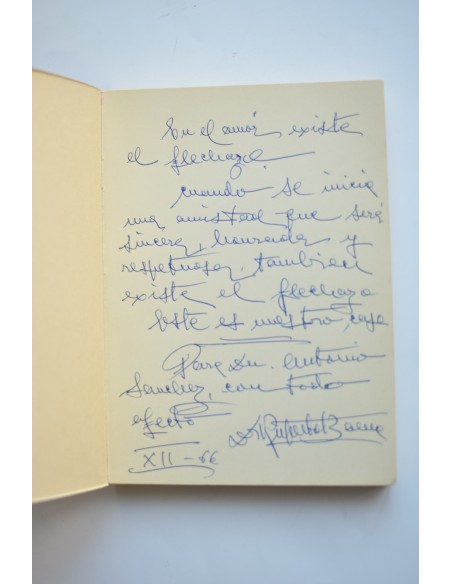 En el amór existe
el flechazo.
cuando se inicia
una amistad que será
sincera, honrada y
respetuosa, tambien
existe el flechazo
Este es nuestro caso
Para Dn. Antonio
Sanchez, con todo
afecto
Baena
XII-66